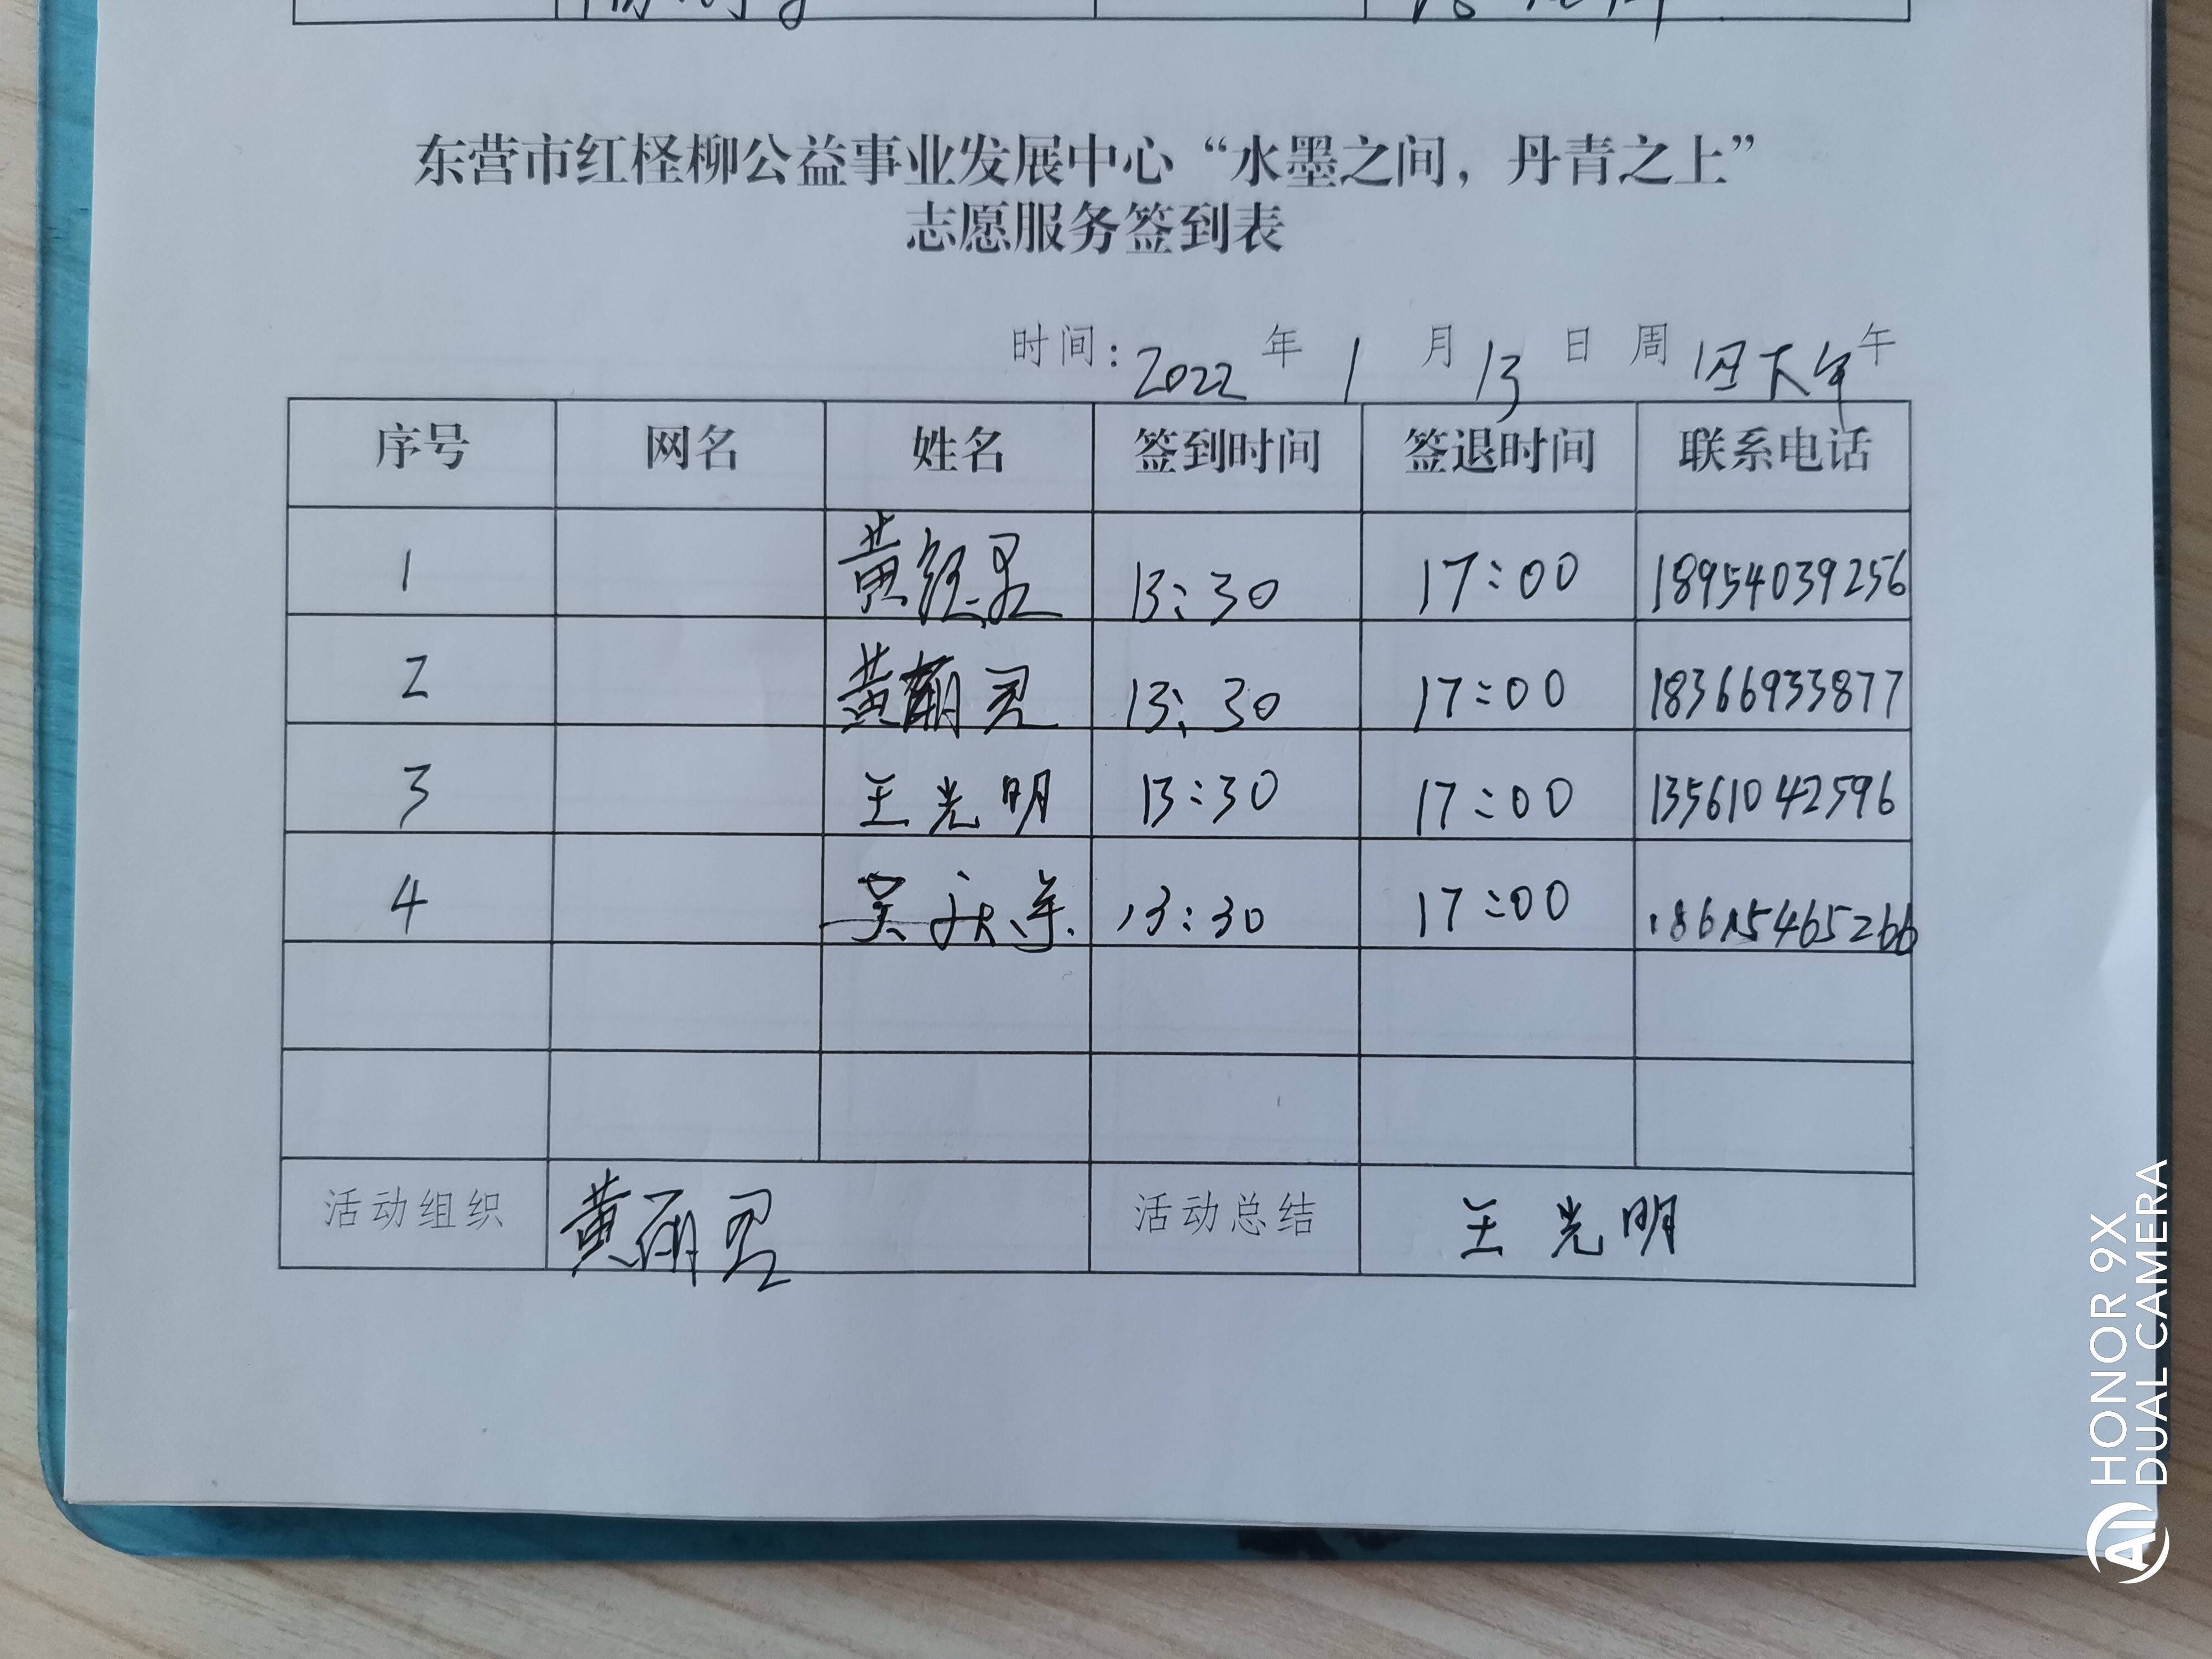 东营市红柽柳公益事业发展中心“水墨之间，丹青之上”
志愿服务签到表
时间：2022 年 1 月 13 日 周 四下午午
序号 网名 姓名 签到时间 签退时间 联系电话
1 黄经昆 13:30 17:00 18954039256
2 黄 13:30 17:00 18366933877
3 王光明 13:30 17:00 13561042596
4 吴 13:30 17:00 18615465266
活动组织 黄雨君 活动总结 王光明
HONOR 9X
DUAL CAMERA
AI